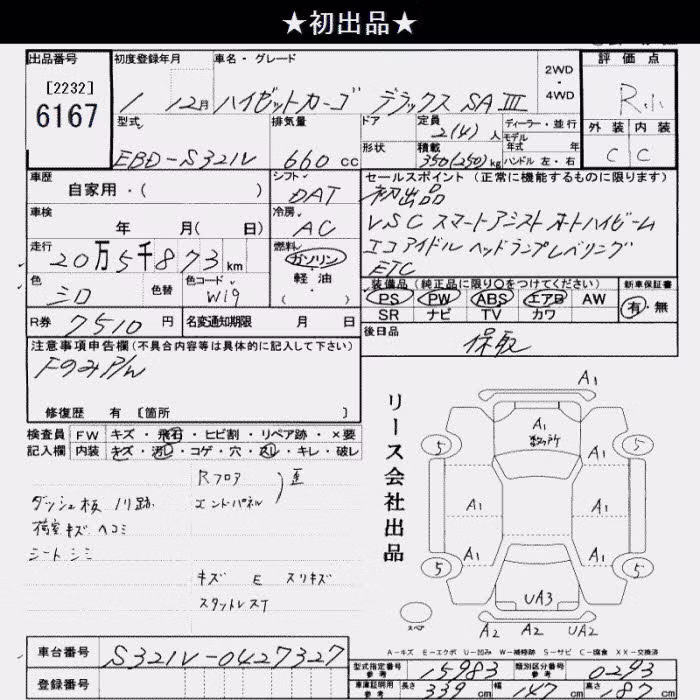 ★初出品★
出品番号
[2232]
6167
初度登録年月
1 12月
車名・グレード
ハイゼットカーゴ デラックス SA Ⅲ
2WD
・
4WD
評価点
R.小
外装 内装
C C
型式
EBD-S321V
排気量
660 cc
ドア
形状
定員
2(4) 人
積載
350(250) kg
ディーラー・並行
モデル
年式 年
ハンドル 左・右
車歴
自家用・( )
シフト
DAT
車検
年 月( 日)
冷房
AC
走行
20万5千873 km
燃料
ガソリン
軽油
( )
色
シロ
色替
色コード
W19
R券
7510 円
名変通知期限 月 日
セールスポイント (正常に機能するものに限ります)
初出品
VSC スマートアシスト オートハイビーム
エコアイドル ヘッドランプレベリング
ETC
装備品 (純正品に限り○をつけてください)
PS PW ABS エアB AW
SR ナビ TV カワ
新車保証書
有・無
後日品
保取
注意事項申告欄 (不具合内容等は具体的に記入して下さい)
FのみP/W
修復歴 有 [箇所 ]
検査員
記入欄
FW キズ・飛石・ヒビ割・リペア跡・×要
内装 キズ・汚レ・コゲ・穴・スレ・キレ・破レ
Rフロア
エンドパネル
ダッシュ板 ノリ跡
荷室キズ ヘコミ
シート シミ
キズ E スリキズ
スタットレスT
リース会社出品
A1
A1
5 5
A1 A1
A1 A1
5 5
UA3
スペア
A2 A2 UA2
A-キズ E-エクボ U-凹み W-補修跡 S-サビ C-腐食 XX-交換済
車台番号
S321V-0427327
登録番号
型式指定番号
参考
15983
類別区分番号
参考
0293
車庫証明用
参考
長さ 339 cm 幅 147 cm 高さ 187 cm